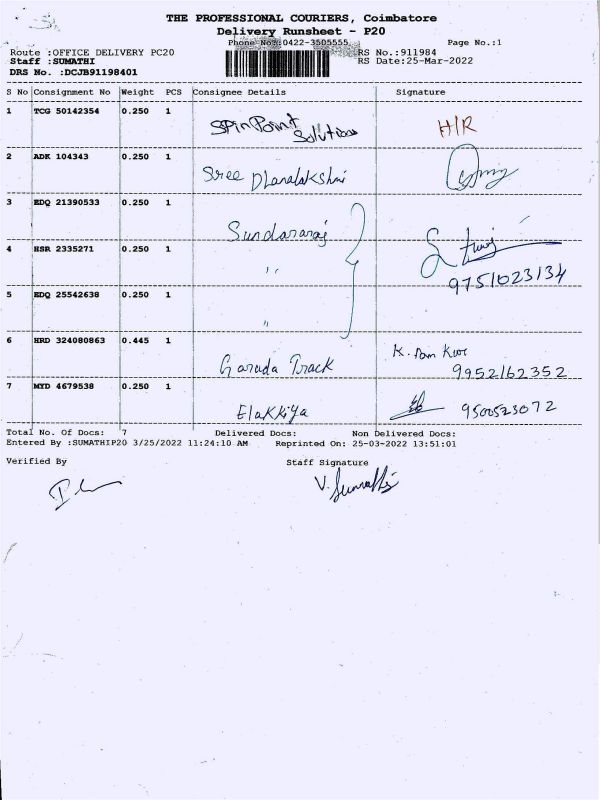 THE PROFESSIONAL COURIERS, Coimbatore
Delivery Runsheet - P20
Phone Nos:0422-3505555 Page No.:1
Route :OFFICE DELIVERY PC20 RS No.:911984
Staff :SUMATHI RS Date:25-Mar-2022
DRS No. :DCJB91198401
S No Consignment No Weight PCS Consignee Details Signature
1 TCG 50142354 0.250 1 SPinPoint Solutions H/R
2 ADK 104343 0.250 1 Sree Dhanalakshmi
3 EDQ 21390533 0.250 1 Sundararaj
4 HSR 2335271 0.250 1 " 9751023134
5 EDQ 25542638 0.250 1 "
6 HRD 324080863 0.445 1 Garuda Track K. Ram 9952162352
7 MYD 4679538 0.250 1 Elakkiya 9500523072
Total No. Of Docs: 7 Delivered Docs: Non Delivered Docs:
Entered By :SUMATHIP20 3/25/2022 11:24:10 AM Reprinted On: 25-03-2022 13:51:01
Verified By Staff Signature